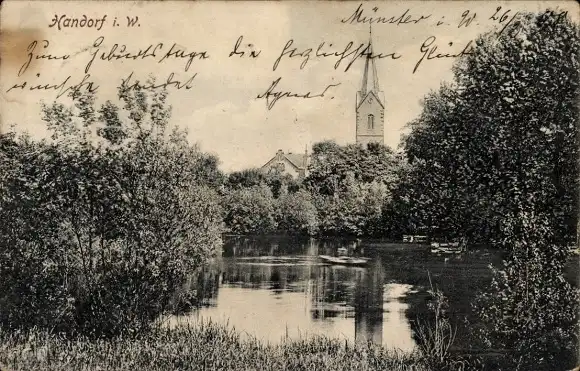 Handorf i. W.
Münster i. W. 26
Zum Geburtstage die herzlichsten Glück
wünsche sendet
Agnes.